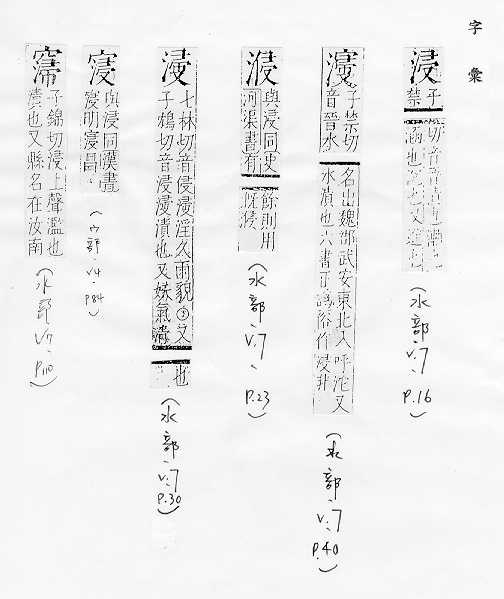 字彙
浸
子禁
切音
(水部、V.7、P.16)
子禁切
音晉水
名出魏郡武安東北入呼沱又
水漬也六書正譌俗作浸非
(水部、V.7、P.40)
與浸同史
河渠書有
餘則用
溉浸
(水部、V.7、P.23)
七林切音侵浸淫久雨貌又
子鴆切音浸浸漬也又妖氣
也
(水部、V.7、P.30)
與浸同漢書
寖明寖昌
(宀部、V4、P84)
子錦切浸上聲濫也
漬也又縣名在汝南
(水部、V7、P110)